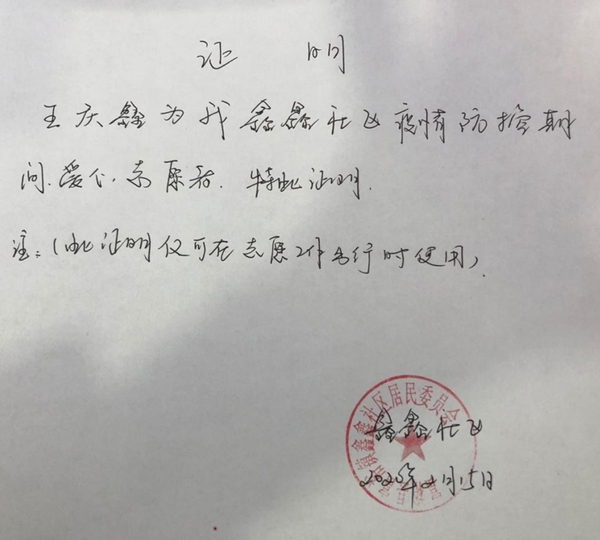 证 明
王庆鑫为我鑫鑫社区疫情防控期
间.爱心.志愿者.特此证明.
注:(此证明仅可在志愿工作出行时使用).
镇鑫鑫社区居民委员会
鑫鑫社区
2020年2月15日